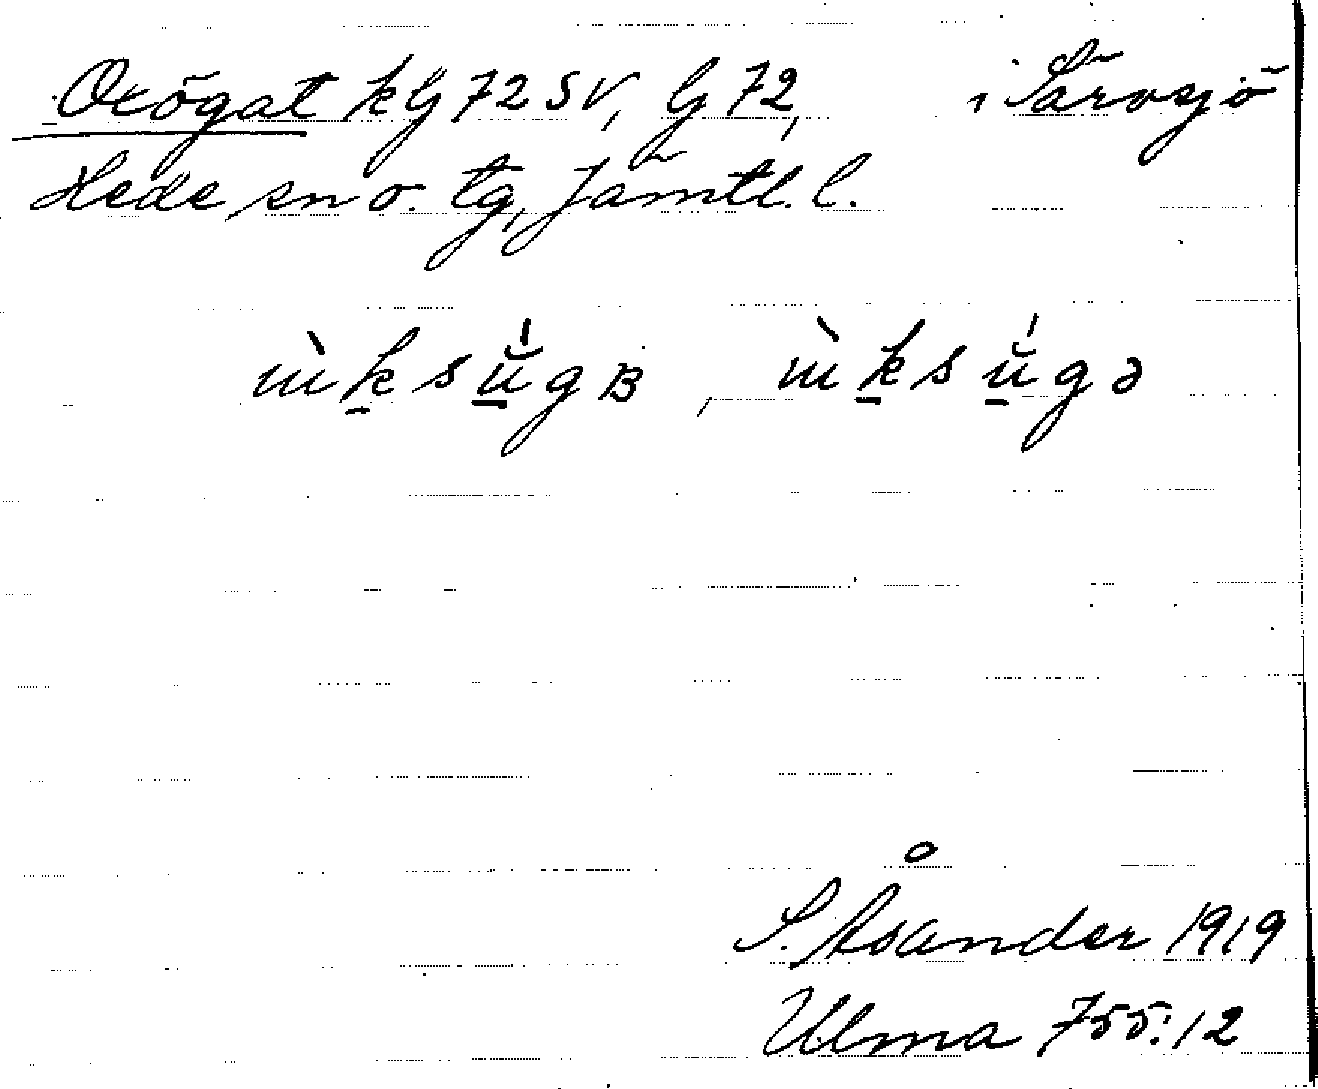 Oxögat kG 72 SV, G 72, i Särvsjö
Hede sn o. tg, Jämtl. l.
ùksúgв, ùksúgə
S. Åsander 1919
Ulma 755:12